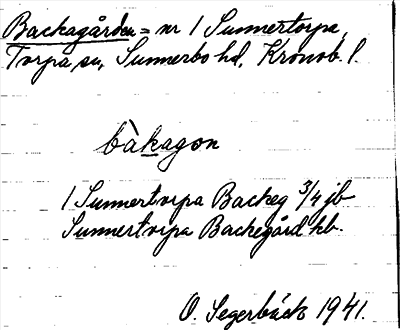 Backagården = nr 1 Sunnertorpa,
Torpa sn, Sunnerbo hd, Kronob. l.
bàkagon
1 Sunnertorpa Backeg 3/4 jb
Sunnertorpa Backegård hb.
O. Segerbäck 1941.